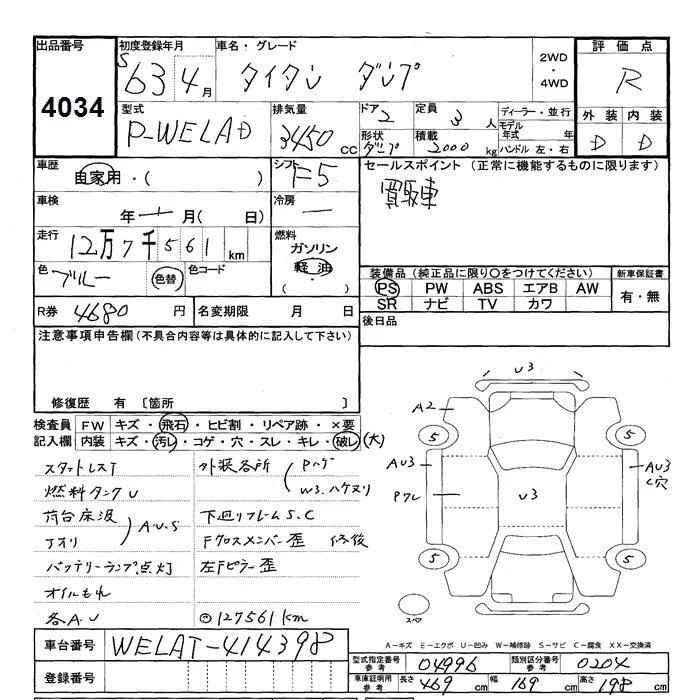 出品番号
4034
初度登録年月
S63年4月
車名・グレード
タイタン ダンプ
2WD
・
4WD
評価点
R
外装 内装
D D
型式
P-WELAD
排気量
3450 CC
ドア
2
定員
3 人
形状
ダンプ
積載
2000 kg
ディーラー・並行
モデル
年式 年
ハンドル 左・右
車歴
自家用・( )
シフト
F5
車検
年 月( 日)
冷房
セールスポイント (正常に機能するものに限ります)
買取車
走行
12万7千561 km
燃料
ガソリン
軽油
色
ブルー
色替
色コード
装備品(純正品に限り○をつけてください)
PS PW ABS エアB AW
SR ナビ TV カワ
新車保証書
有・無
R券 4680 円
名変期限 月 日
後日品
注意事項申告欄(不具合内容等は具体的に記入して下さい)
修復歴 有 〔箇所 〕
検査員 FW キズ・飛石・ヒビ割・リペア跡・×要
記入欄 内装 キズ・汚レ・コゲ・穴・スレ・キレ・破レ(大)
スタットレスT
燃料タンクU
荷台床凹
アオリ
A.U.S
バッテリーランプ点灯
オイルもれ
各A.U
外装各所
Pハゲ
W3.ハケヌリ
下廻りフレームS.C
Fクロスメンバー歪 修後
左Fピラー歪
127561km
U3
A2
5
5
AU3
Pフレ
U3
AU3
C穴
5
5
スペア
A-キズ E-エクボ U-凹み W-補修跡 S-サビ C-腐食 XX-交換済
車台番号 WELAT-414398
登録番号
型式指定番号
参考
04996
類別区分番号
参考
0204
車庫証明用
参考
長さ 469 cm 幅 169 cm 高さ 198 cm